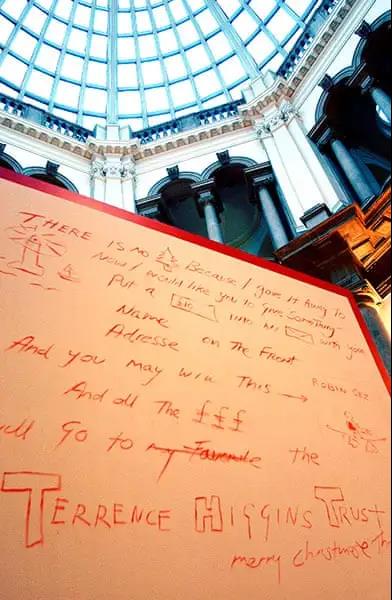 THERE IS NO Because I gave it Away To
Now I would like you to give Something
Put a £10 into an with your
Name on The Front
Adresse
And you may win This → ROBIN SEZ
And all The £££
will Go to my Favourite the
TERRENCE HIGGINS TRUST
merry christmose